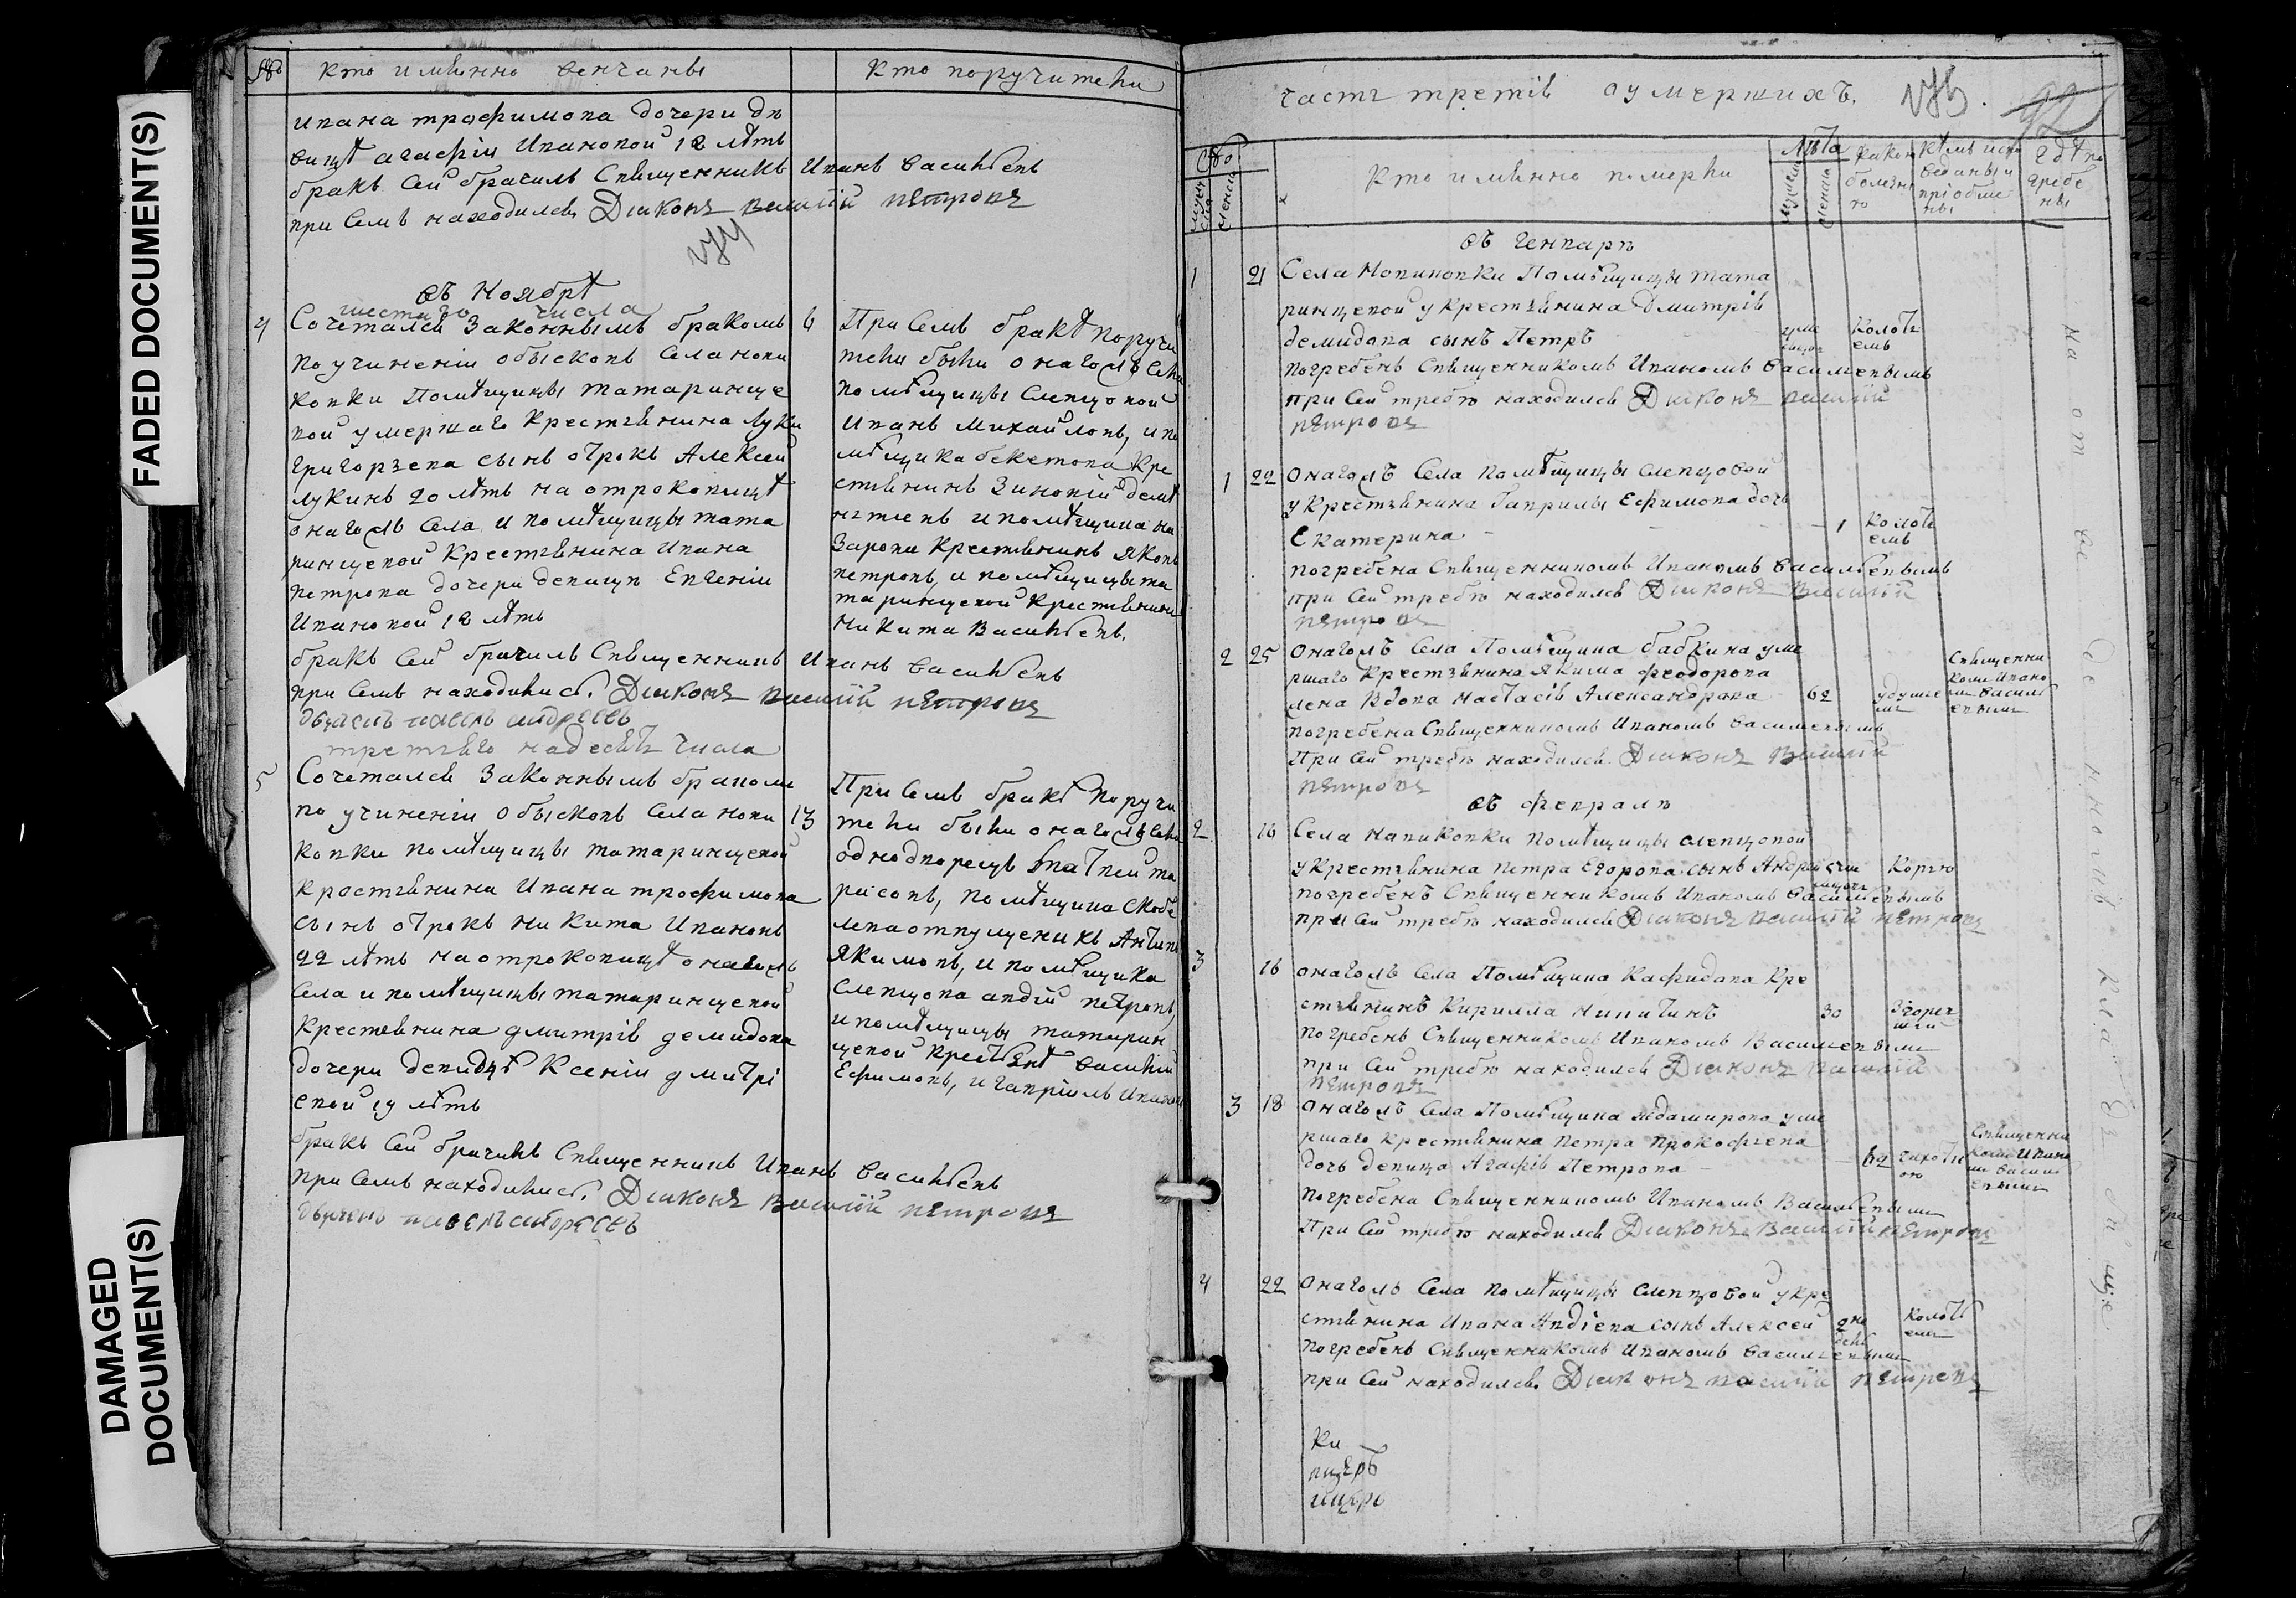 FADED DOCUMENT(S)
DAMAGED
DOCUMENT(S)
№ Кто имянно венчаны Кто поручители
Ивана трофимова дочери дѣ
вицѣ агафіи Ивановой 18 лѣтъ
бракъ сей брачилъ Священникъ Иванъ васильевъ
при семъ находился Діаконъ василій петровъ
въ Ноябрѣ
шестаго числа
4 Сочетался законнымъ бракомъ 6
по учиненіи обысковъ села нови
ковки помѣщицы татаринце
вой умершаго крестьянина Луки
григорьева сынъ отрокъ Алексей
лукинъ 20 лѣтъ на отроковицѣ
онагожъ села и помѣщицы тата
ринцевой крестьянина Ивана
петрова дочери девицъ Евгеніи
Ивановой 18 лѣтъ
При семъ бракѣ поручи
тели были онагожъ села
помѣщицы слепцовой
Иванъ Михайловъ, и по
мѣщика бекетова кре
стьянинъ Зиновій деме
нтьевъ и помѣщика на
зарова крестьянинъ яковъ
петровъ, и помѣщицы та
таринцевой крестьянинъ
никита Васильевъ.
бракъ сей брачилъ Священникъ Иванъ васильевъ
при семъ находились Діаконъ василій петровъ
дьячекъ павелъ андреевъ
третьяго надесять числа
5 Сочетался законнымъ бракомъ
по учиненіи обысковъ села нови 13
ковки помѣщицы татаринцевой
крестьянина Ивана трофимова
сынъ отрокъ никита Ивановъ
22 лѣтъ на отроковицѣ онагожъ
села и помѣщицы татаринцевой
крестьянина дмитрія демидова
дочери девицѣ Ксеніи дмитрі
евой 19 лѣтъ
При семъ бракѣ поручи
тели были онагожъ села
однодворецъ та
расовъ, помѣщика скобе
лева отпущеникъ Антипъ
якимовъ, и помѣщика
слепцова петровъ,
и помѣщицы татарин
цевой василій
Ефимовъ, и гавріилъ Ивановъ
бракъ сей брачилъ Священникъ Иванъ васильевъ
при семъ находились Діаконъ Василій петровъ
дьячекъ павелъ андреевъ
часть третія оумершихъ. 92
№ Кто имянно померли Лѣта какою болезнію кѣмъ исповеданы и пріобщены гдѣ погребены
мужеска женска
въ генваре
1 21 Села Новиковки Помѣщицы тата
ринцевой у крестьянина Дмитрія
демидова сынъ Петръ колотьемъ
погребенъ Священникомъ Иваномъ васильевымъ
при сей требѣ находился Діаконъ василій
петровъ
1 22 Онагожъ села помѣщицы слепцовой
у крестьянина Гаврилы Ефимова дочь
Екатерина - 1 колотьемъ
погребена Священникомъ Иваномъ васильевымъ
при сей требѣ находился Діаконъ василій
петровъ
2 25 Онагожъ села Помѣщика бабкина уме
ршаго крестьянина якима феодорова
жена вдова настасія Александрова 62 удушьемъ Священникомъ Иваномъ васильевымъ
погребена Священникомъ Иваномъ васильевымъ
При сей требѣ находился Діаконъ василій
петровъ
въ феврале
2 16 Села Навиковки помѣщицы слепцовой
у крестьянина петра Егорова сынъ Андрей корью
погребенъ Священникомъ Иваномъ васильевымъ
при сей требѣ находился Діаконъ василій петровъ
3 16 онагожъ села Помѣщика кре
стьянинъ Кирилла никитинъ 30
погребенъ Священникомъ Иваномъ Васильевымъ
при сей требѣ находился Діаконъ василій
петровъ
3 18 Онагожъ села Помѣщика уме
ршаго крестьянина петра прокофьева
дочь девица Агафія Петрова 62 чахоткою Священникомъ Иваномъ васильевымъ
погребена Священникомъ Иваномъ Васильевымъ
При сей требѣ находился Діаконъ Василій петровъ
4 22 Онагожъ села помѣщицы слепцовой у кре
стьянина Ивана сынъ Алексей колотьемъ
погребенъ Священникомъ Иваномъ васильевымъ
при сей находился Діаконъ василій петровъ
на от ве де нномъ кла дъ би щѣ